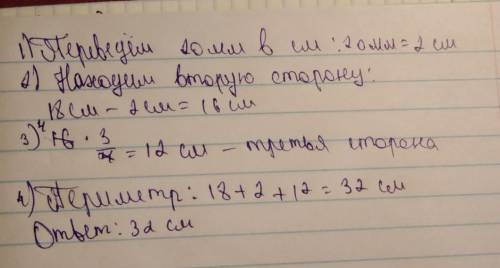 1) Переведём 20мм в см : 20мм = 2 см
2) Находим вторую сторону:
18 см - 2 см = 16 см
3) 16 4 · 3/4 = 12 см - третья сторона
4) Периметр: 18 + 2 + 12 = 32 см
Ответ: 32 см